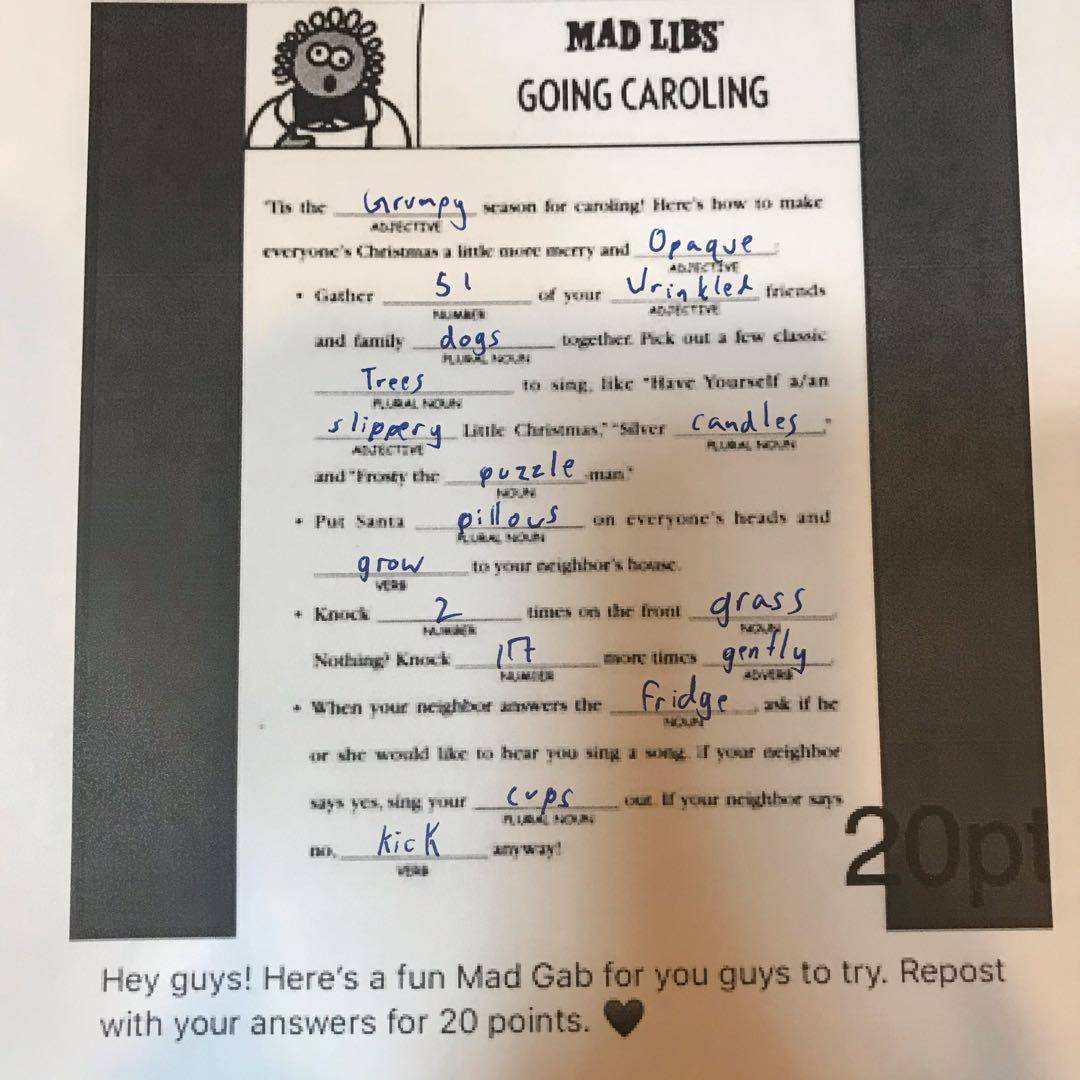 MAD LIBS
GOING CAROLING
'Tis the Grumpy season for caroling! Here's how to make
ADJECTIVE
everyone's Christmas a little more merry and Opaque:
ADJECTIVE
• Gather 51 of your Wrinkled friends
NUMBER ADJECTIVE
and family dogs together. Pick out a few classic
PLURAL NOUN
Trees to sing, like "Have Yourself a/an
PLURAL NOUN
slippery Little Christmas," "Silver candles,"
ADJECTIVE PLURAL NOUN
and "Frosty the puzzle-man."
NOUN
• Put Santa pillows on everyone's heads and
PLURAL NOUN
grow to your neighbor's house.
VERB
• Knock 2 times on the front grass.
NUMBER NOUN
Nothing? Knock 17 more times gently.
NUMBER ADVERB
• When your neighbor answers the fridge, ask if he
NOUN
or she would like to hear you sing a song. If your neighbor
says yes, sing your cups out. If your neighbor says
PLURAL NOUN
no, kick anyway!
VERB
20pt
Hey guys! Here's a fun Mad Gab for you guys to try. Repost
with your answers for 20 points. 🖤